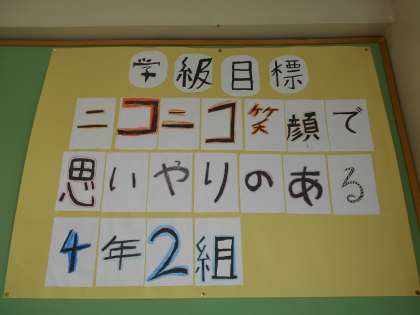 学級目標
ニコニコ笑顔で
思いやりのある
4年2組